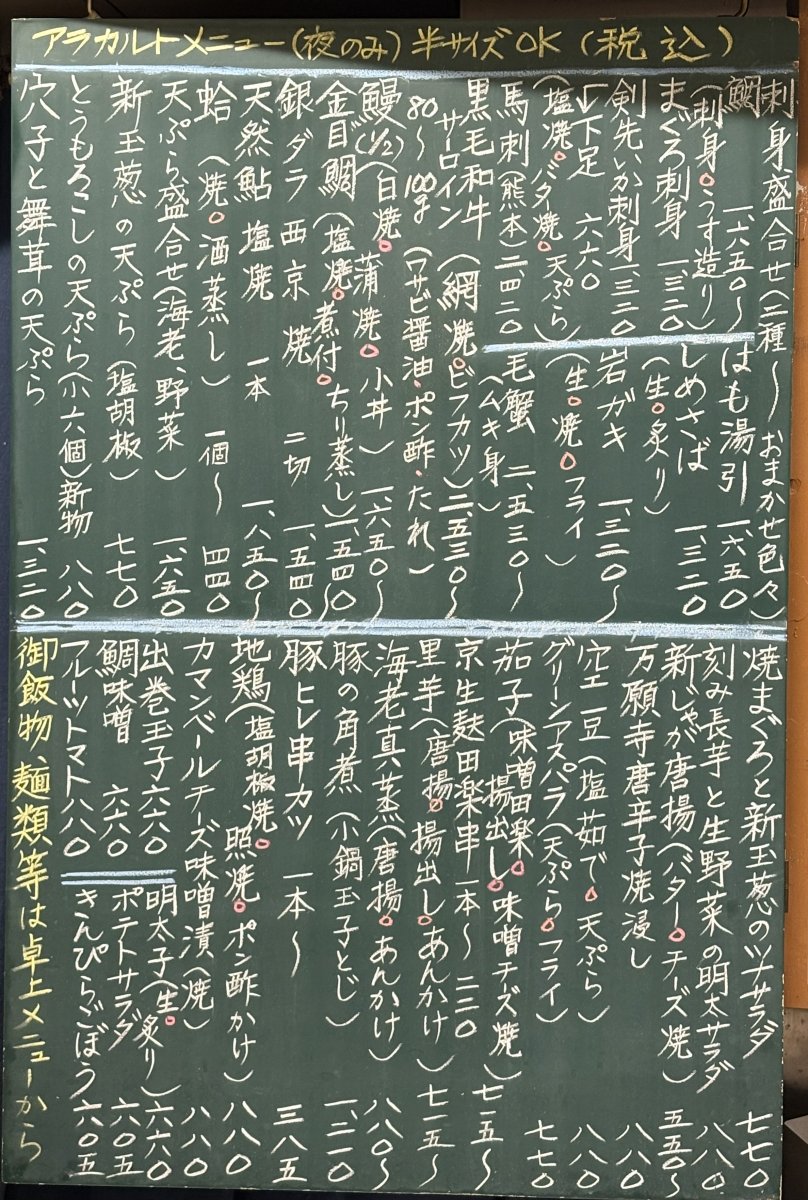 アラカルトメニュー(夜のみ)半サイズOK(税込)
刺身盛合せ(二種〜おまかせ色々)
鯛 一、六五〇〜
(刺身。うす造り)
はも湯引 一、六五〇
まぐろ刺身 一、三二〇
しめさば 一、三二〇
(生。炙り)
剣先いか刺身 一、三二〇
岩ガキ 一、三二〇〜
(生。焼。フライ)
下足 六六〇
(塩焼。バター焼。天ぷら)
馬刺(熊本)二、四二〇
毛蟹 二、五三〇〜
(ムキ身)
黒毛和牛
サーロイン(網焼。ビフカツ)二、五三〇〜
80〜100g(ワサビ醤油・ポン酢・たれ)
鰻(1/2)(白焼。蒲焼。小丼)一、六五〇〜
金目鯛(塩焼。煮付。ちり蒸し)一、五四〇〜
銀ダラ西京焼 二切 一、五四〇
天然鮎塩焼 一本 一、八五〇〜
蛤(焼。酒蒸し)一個〜 四四〇
天ぷら盛合せ(海老、野菜)一、六五〇
新玉葱の天ぷら(塩胡椒)七七〇
とうもろこしの天ぷら(小六個)新物 八八〇
穴子と舞茸の天ぷら 一、三二〇
焼まぐろと新玉葱のツナサラダ 七七〇
刻み長芋と生野菜の明太サラダ 八八〇
新じゃが唐揚(バター。チーズ焼)五五〇〜
万願寺唐辛子焼浸し 八八〇
空豆(塩茹で。天ぷら)八八〇
グリーンアスパラ(天ぷら。フライ)七七〇
茄子(味噌田楽。揚出し。味噌チーズ焼)七一五〜
京生麸田楽串 一本〜 二二〇
里芋(唐揚。揚出し。あんかけ)七一五〜
海老真蒸(唐揚。あんかけ)八八〇〜
豚の角煮(小鍋玉子とじ)一、二一〇
豚ヒレ串カツ 一本〜 三八五
地鶏(塩胡椒焼。照焼。ポン酢かけ)八八〇
カマンベールチーズ味噌漬(焼)八八〇
出巻玉子 六六〇
明太子(生。炙り)六六〇
鯛味噌 六六〇
ポテトサラダ 六〇五
フルーツトマト 八八〇
きんぴらごぼう 六〇五
御飯物、麺類等は卓上メニューから